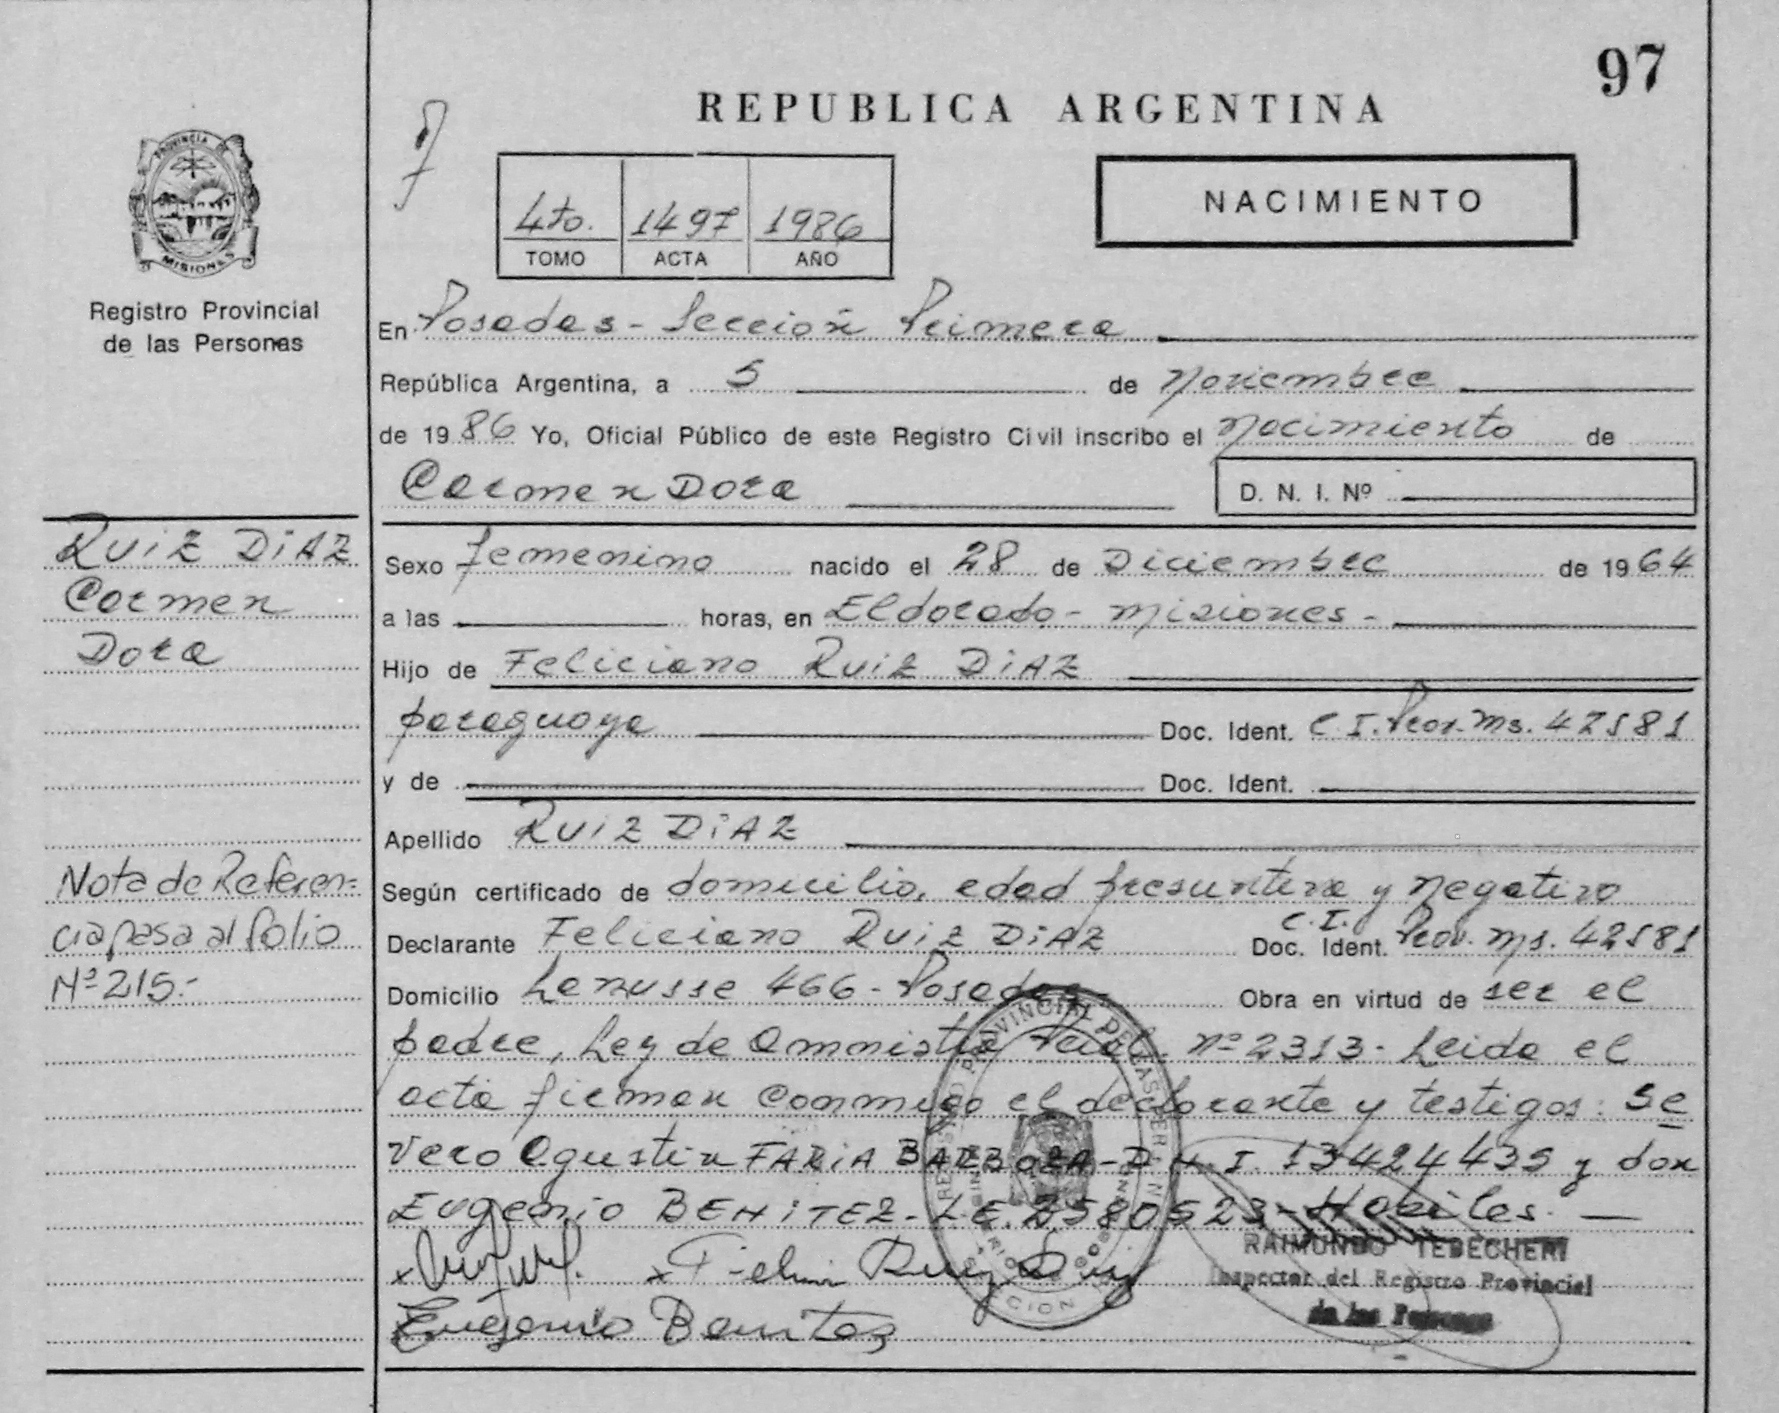 97
REPUBLICA ARGENTINA
PROVINCIA DE
MISIONES
Registro Provincial
de las Personas
4to. 1497 1986
TOMO ACTA AÑO
NACIMIENTO
En Posadas - Sección Primera
República Argentina, a 5 de Noviembre
de 1986 Yo, Oficial Público de este Registro Civil inscribo el Nacimiento de
Carmen Dora D. N. I. Nº
RUIZ DIAZ
Carmen
Dora
Sexo femenino nacido el 28 de Diciembre de 1964
a las horas, en Eldorado - Misiones -
Hijo de Feliciano RUIZ DIAZ
paraguaya Doc. Ident. C.I. Prov. Ms. 42581
y de Doc. Ident.
Apellido RUIZ DIAZ
Nota de Referen=
cia pasa al folio
Nº 215.-
Según certificado de domicilio, edad presuntiva y negativo
Declarante Feliciano RUIZ DIAZ Doc. Ident. C.I. Prov. Ms. 42581
Domicilio Lanusse 466 - Posadas - Obra en virtud de ser el
padre, Ley de Amnistia Pcial. nº 2313 - Leida el
acta firman conmigo el declarante y testigos: Se
vero Agustin FARIA BARBOZA - D.N.I. 13424435 y don
Eugenio BENITEZ - L.E. 2580523 - Habiles. —
Eugenio Benitez
RAIMUNDO TEDECHERI
Inspector del Registro Provincial
de las Personas